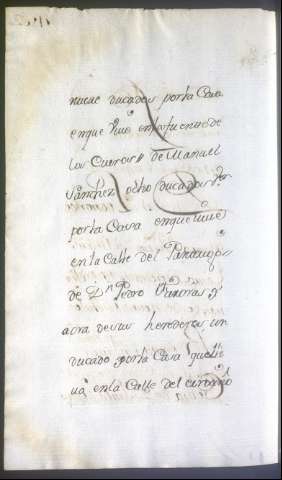 nueue ducados por la Casa
en que Viue en la fuente de
los Cueros de Manuel
Sanchez, ocho ducados
por la Casa en que viue
en la Calle del
de Dn Pedro y
aora de sus herederos, un
ducado por la Casa que
en la Calle del